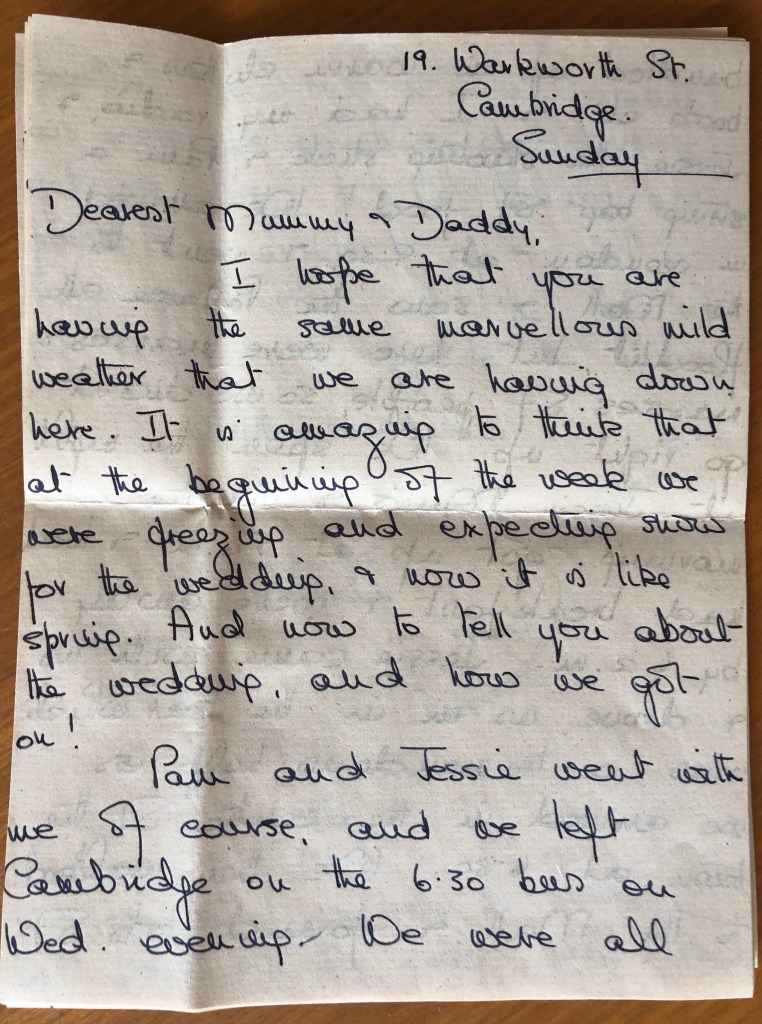 19. Warkworth St.
Cambridge.
Sunday
Dearest Mummy & Daddy,
I hope that you are
having the same marvellous mild
weather that we are having down
here. It is amazing to think that
at the beginning of the week we
were freezing and expecting snow
for the wedding, & now it is like
spring. And now to tell you about
the wedding, and how we got
on!
Pam and Jessie went with
me of course, and we left
Cambridge on the 6.30 bus on
Wed. evening. We were all